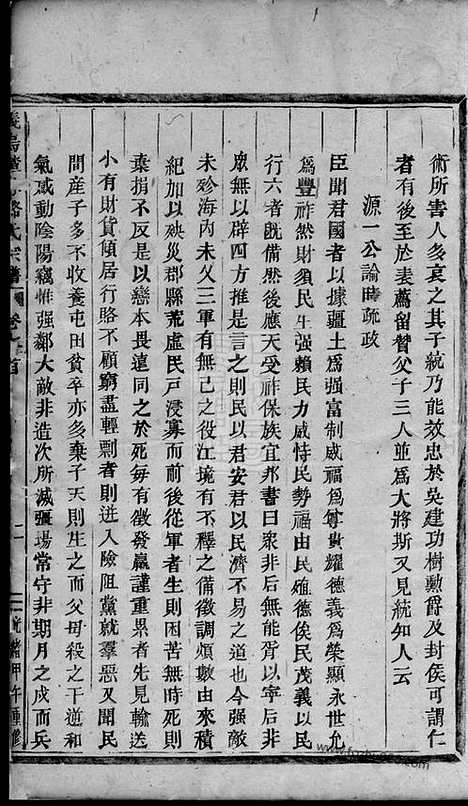 術所害人多哀之其子統乃能效忠於吳建功樹勲爵及封侯可謂仁
者有後至於表薦留贊父子三人並爲大將斯又見統知人云
源一公論時疏政
臣聞君國者以據疆土爲强富制威福爲尊貴耀德義爲榮顯永世允
爲豐祚然財須民生强賴民力威恃民勢福由民殖德俟民茂義以民
行六者旣備然後應天受祚保族宜邦書曰衆非后無能胥以寧后非
衆無以辟四方推是言之則民以君安君以民濟不易之道也今强敵
未殄海内未乂三軍有無已之役江境有不釋之備徵調頻數由來積
紀加以殃災郡縣荒虛民戶浸寡而前後從軍者生則困苦無時死則
棄捐不反是以戀本畏遠同之於死毎有徵發羸謹重累者先見輸送
小有財貨傾居行賂不顧窮盡輕剽者則迸入險阻黨就羣惡又聞民
間産子多不收養屯田貧卒亦多棄子天則生之而父母殺之干逆和
氣感動陰陽竊惟强鄰大敵非造次所滅疆場常守非期月之戍而兵
駱氏宗譜
卷之首
二
光緖甲午重修